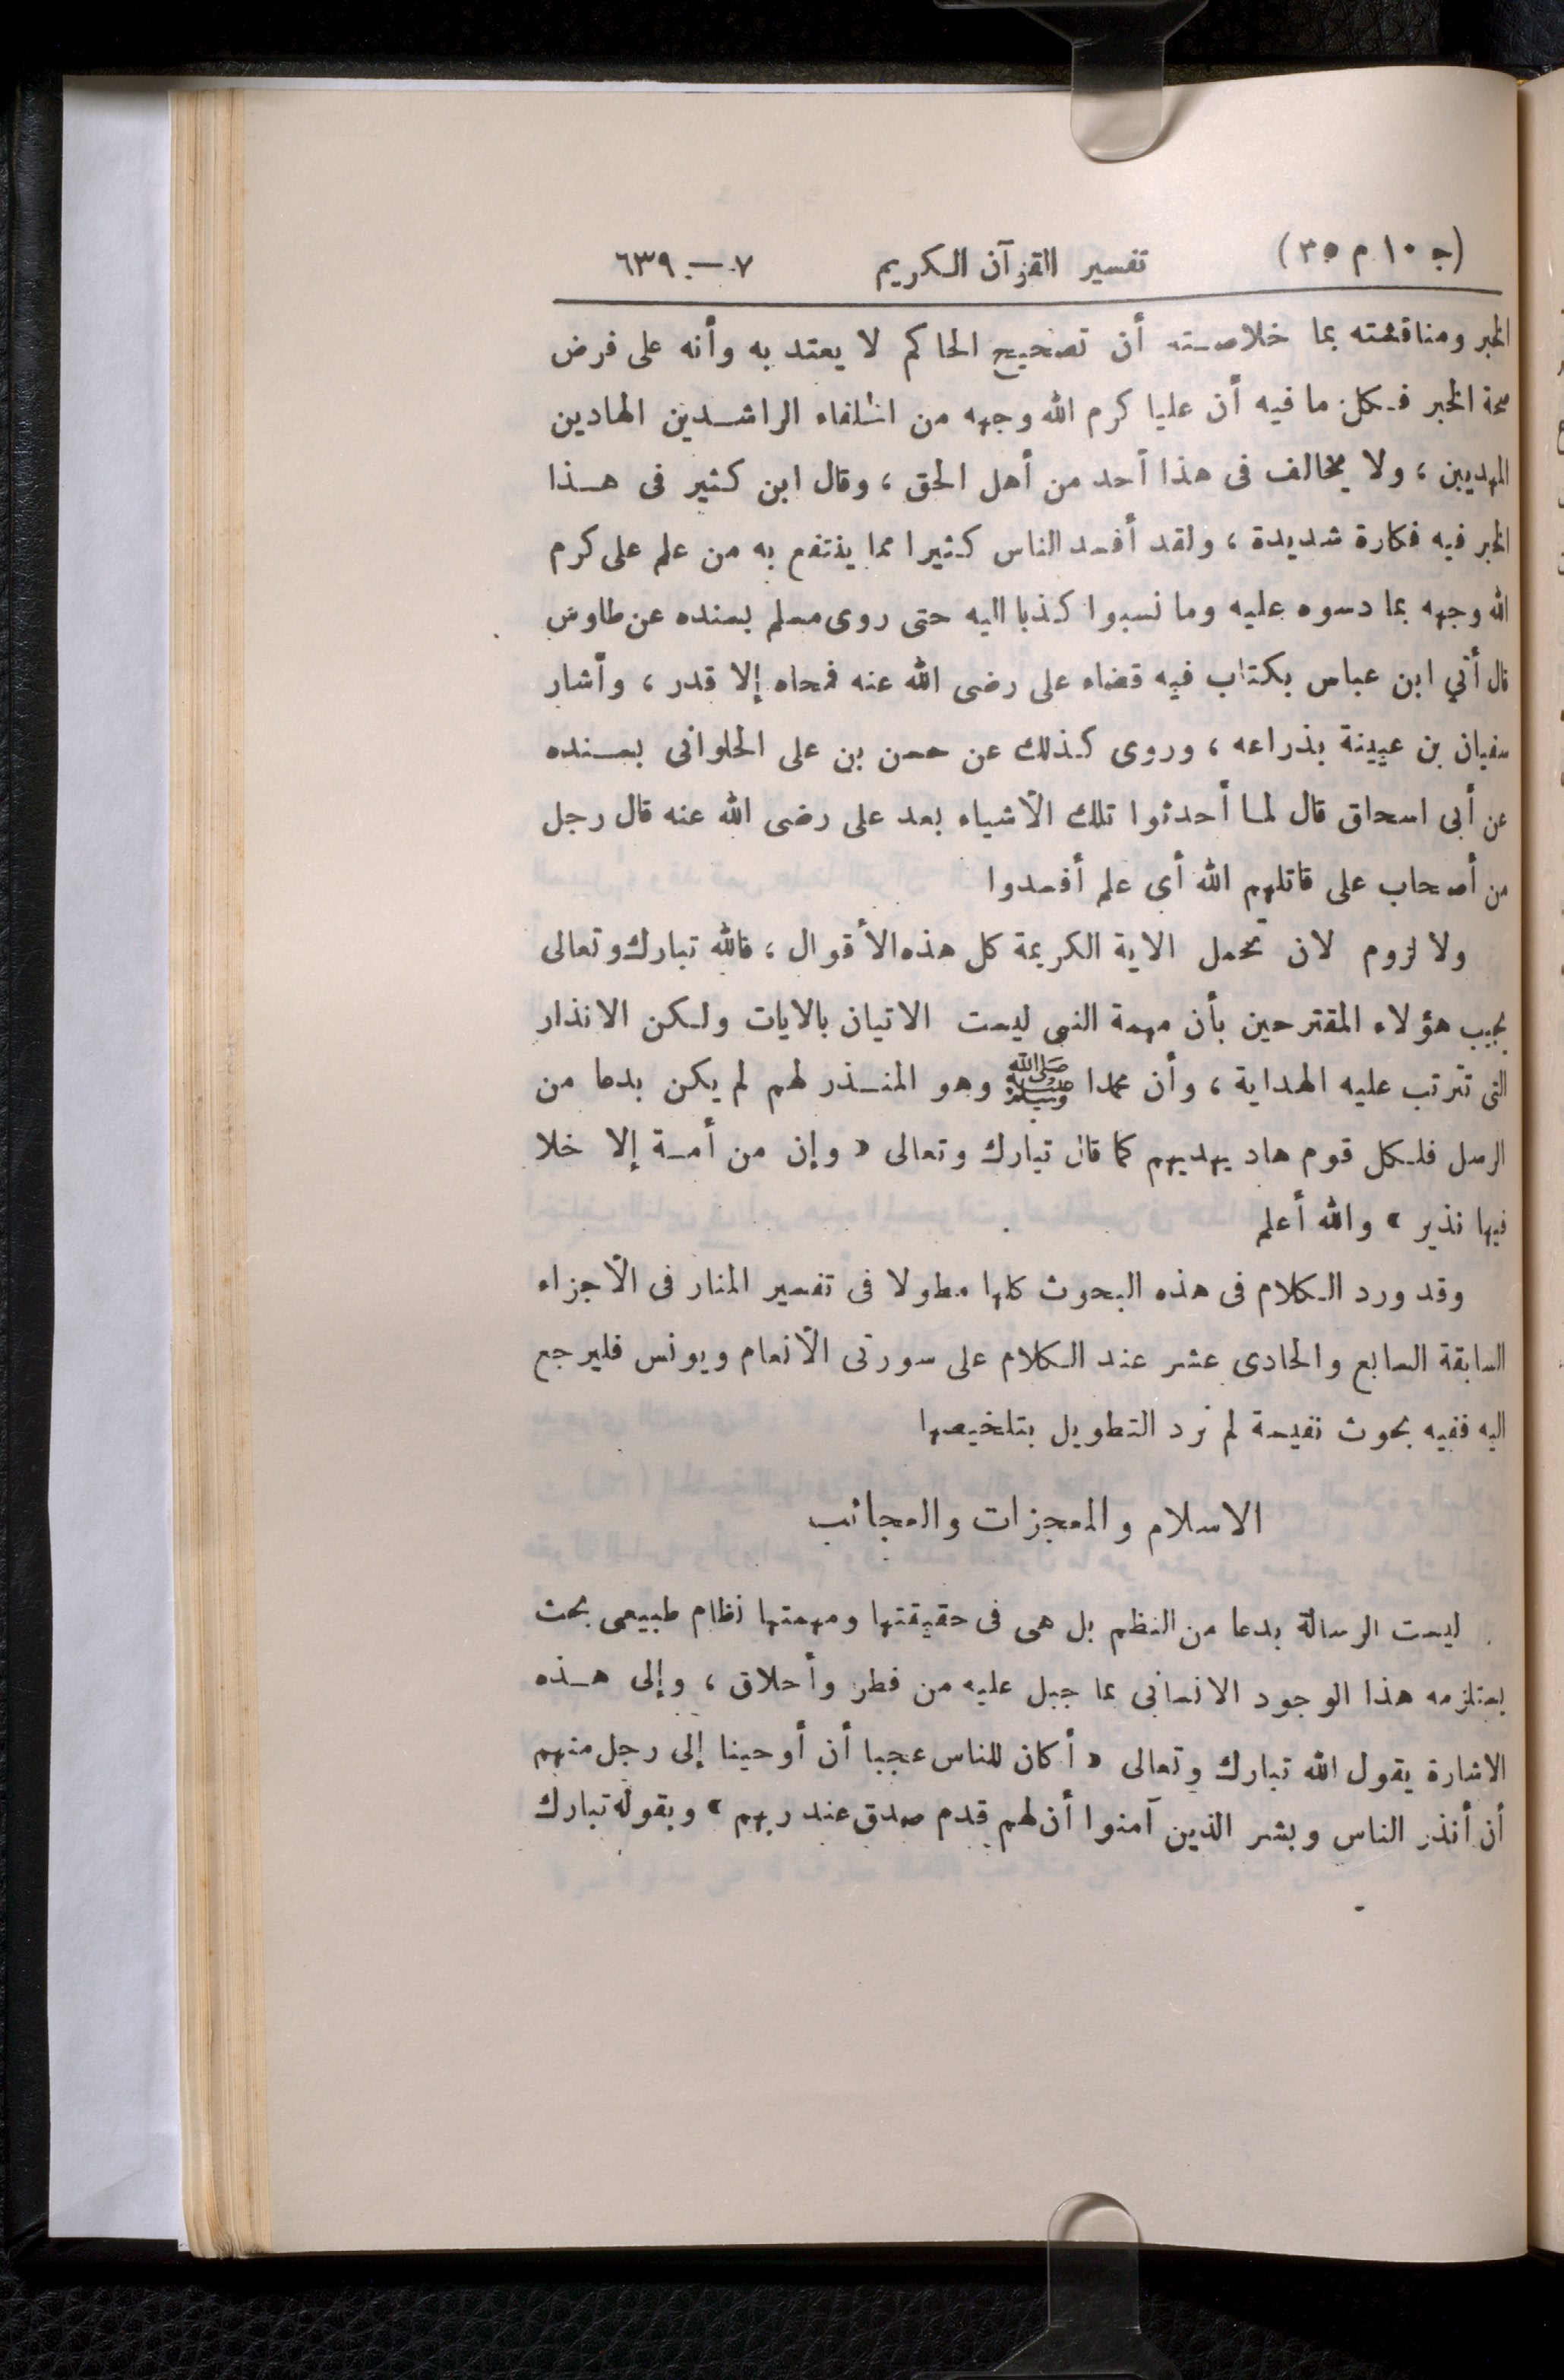 (ج ١٠ م ٣٥) تفسير القرآن الكريم ٧ — ٦٣٩
الخبر ومناقشته بما خلاصته أن تصحيح الحاكم لا يعتد به وأنه على فرض
صحة الخبر فكل ما فيه أن عليا كرم الله وجهه من الخلفاء الراشدين الهادين
المهديين ، ولا يخالف فى هذا أحد من أهل الحق ، وقال ابن كثير فى هذا
الخبر فيه فكارة شديدة ، ولقد أفسد الناس كثيرا مما ينتفع به من علم على كرم
الله وجهه بما دسوه عليه وما نسبوا كذبا اليه حتى روى مسلم بسنده عن طاوس
قال أتي ابن عباس بكتاب فيه قضاء على رضى الله عنه فمحاه إلا قدر ، وأشار
سفيان بن عيينة بذراعه ، وروى كذلك عن حسن بن على الحلوانى بسنده
عن أبى اسحاق قال لما أحدثوا تلك الأشياء بعد على رضى الله عنه قال رجل
من أصحاب على قاتلهم الله أى علم أفسدوا
ولا لزوم لان تحمل الاية الكريمة كل هذه الأقوال ، فالله تبارك وتعالى
يجيب هؤلاء المقترحين بأن مهمة النبى ليست الاتيان بالايات ولكن الانذار
التى تترتب عليه الهداية ، وأن محمدا ﷺ وهو المنذر لهم لم يكن بدعا من
الرسل فلكل قوم هاد يهديهم كما قال تبارك وتعالى « وإن من أمة إلا خلا
فيها نذير » والله أعلم
وقد ورد الكلام فى هذه البحوث كلها مطولا فى تفسير المنار فى الأجزاء
السابقة السابع والحادى عشر عند الكلام على سورتى الأنعام ويونس فليرجع
اليه ففيه بحوث نفيسة لم نرد التطويل بتلخيصها
الاسلام والمعجزات والعجائب
ليست الرسالة بدعا من النظم بل هى فى حقيقتها ومهمتها نظام طبيعى بحت
يستلزمه هذا الوجود الانسانى بما جبل عليه من فطر وأحلاق ، وإلى هذه
الاشارة يقول الله تبارك وتعالى « أكان للناس عجبا أن أوحينا إلى رجل منهم
أن أنذر الناس وبشر الذين آمنوا أن لهم قدم صدق عند ربهم » وبقوله تبارك